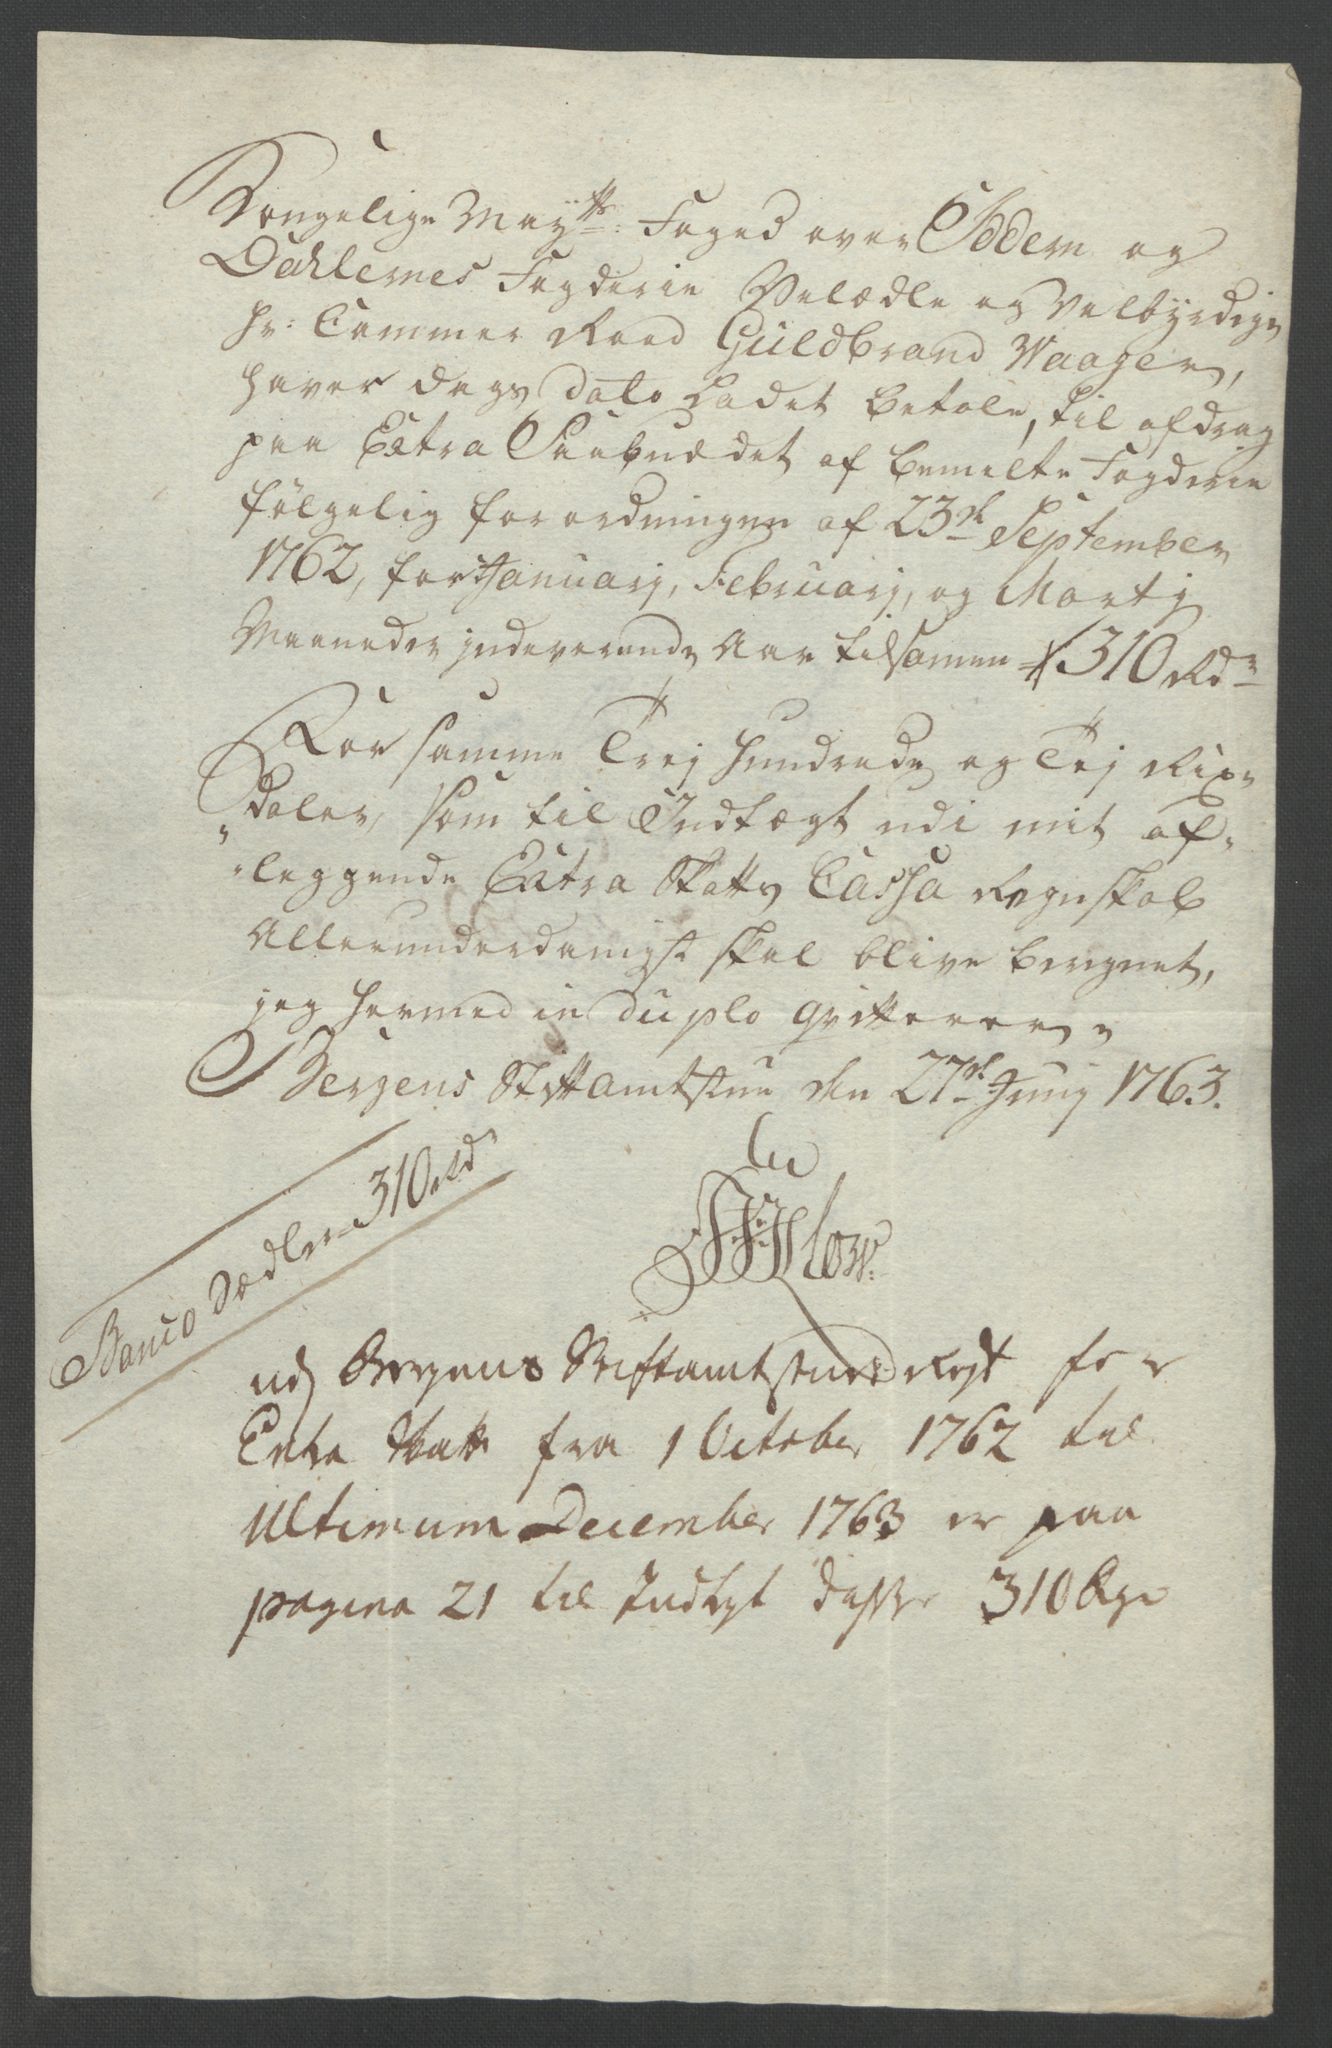 Kongelige Mayts: Foged over Jædern og
Dahlernes Fogderie Velædle og Velbyrdige
Hr: Cammer Raad Guldbrand Waagen,
haver dags dato ladet betale, til afdrag
paa Extra Paabuddet af bemelte Fogderie
følgelig forordningen af 23de September
1762, for Januarij, Februarij, og Martij
Maaneder indeverende Aar tilsamen 310 Rdr
For samme Trej Hundrede og Tej Rix
daler, som til Indtægt udi mit af-
leggende Extra Skatts Cassa Regnskab
Allerunderdanigst skal blive beregnet,
jeg hermed in duplo qvitterer
Bergens Stiftamtstue den 27de Junij 1763.
Banco Sedler 310 rd
udj Bergens Stiftamtstues Regst for
Extra Skatt fra 1 October 1762 til
Ultimum December 1763 er paa
pagina 21 til Indtegt disse 310 Rdr